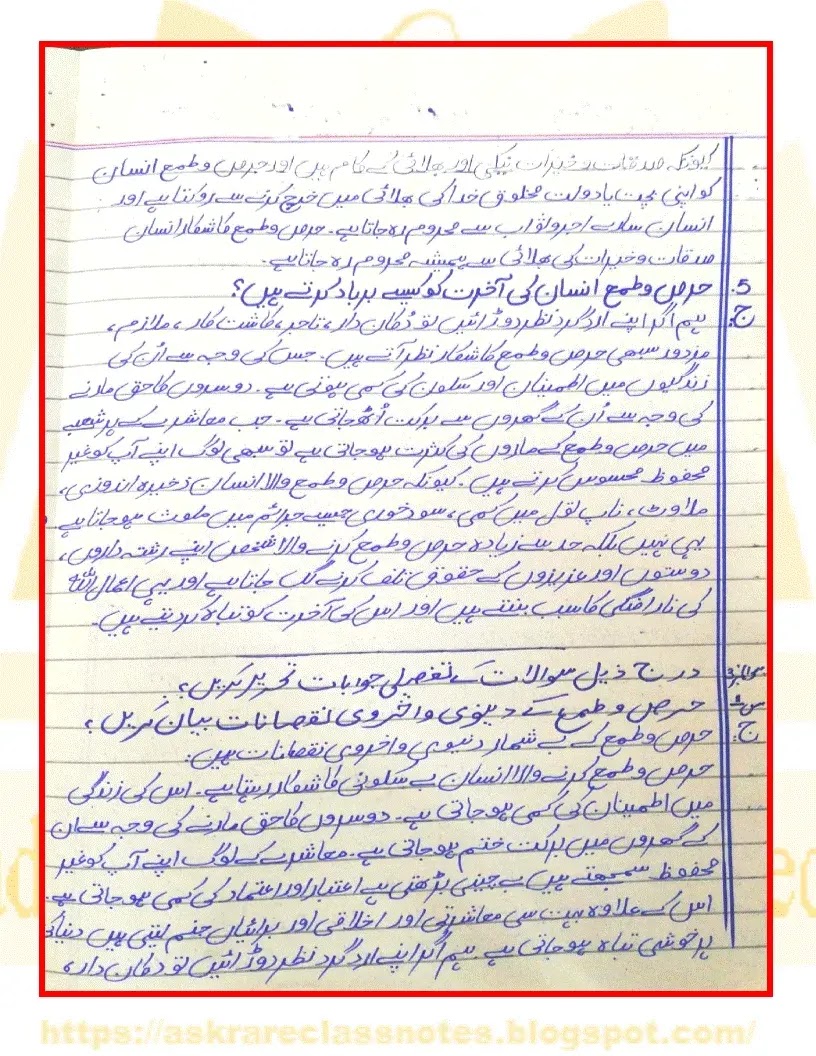 کیونکہ صدقات و خیرات نیکی اور بھلائی کے کام ہیں اور حرص و طمع انسان
کو اپنی بچت یا دولت مخلوق خدا کی بھلائی میں خرچ کرنے سے روکتا ہے اور
انسان سارے اجر و ثواب سے محروم رہ جاتا ہے۔ حرص و طمع کا شکار انسان
صدقات و خیرات کی بھلائی سے ہمیشہ محروم رہ جاتا ہے۔
5. حرص و طمع انسان کی آخرت کو کیسے برباد کرتے ہیں؟
ج: ہم اگر اپنے ارد گرد نظر دوڑائیں تو دُکان دار، تاجر، کاشت کار، ملازم،
مزدور سبھی حرص و طمع کا شکار نظر آتے ہیں۔ جس کی وجہ سے اُن کی
زندگیوں میں اطمینان اور سکون کی کمی ہوتی ہے۔ دوسروں کا حق مارنے
کی وجہ سے اُن کے گھروں سے برکت اُٹھ جاتی ہے۔ جب معاشرے کے ہر شعبے
میں حرص و طمع کے ماروں کی کثرت ہو جاتی ہے تو سبھی لوگ اپنے آپ کو غیر
محفوظ محسوس کرتے ہیں۔ کیونکہ حرص و طمع والا انسان ذخیرہ اندوزی،
ملاوٹ، ناپ تول میں کمی، سود خوری جیسے جرائم میں ملوث ہو جاتا ہے
یہی نہیں بلکہ حد سے زیادہ حرص و طمع کرنے والا شخص اپنے رشتہ داروں،
دوستوں اور عزیزوں کے حقوق تلف کرنے لگ جاتا ہے اور یہی اعمال اللہ
کی ناراضگی کا سبب بنتے ہیں اور اس کی آخرت کو تباہ کر دیتے ہیں۔
درج ذیل سوالات کے تفصیلی جوابات تحریر کریں؟
حرص و طمع کے دنیوی و اخروی نقصانات بیان کریں؟
ج: حرص و طمع کے بے شمار دنیوی و اخروی نقصانات ہیں۔
حرص و طمع کرنے والا انسان بے سکونی کا شکار رہتا ہے۔ اس کی زندگی
میں اطمینان کی کمی ہو جاتی ہے۔ دوسروں کا حق مارنے کی وجہ سے ان
کے گھروں میں برکت ختم ہو جاتی ہے۔ معاشرے کے لوگ اپنے آپ کو غیر
محفوظ سمجھتے ہیں بے چینی بڑھتی ہے اعتبار اور اعتماد کی کمی ہو جاتی ہے۔
اس کے علاوہ بہت سی معاشرتی اور اخلاقی اور برائیاں جنم لیتی ہیں دنیا کی
ہر خوشی تباہ ہو جاتی ہے۔ ہم اگر اپنے ارد گرد نظر دوڑائیں تو دکان دار،
https://askrareclassnotes.blogspot.com/